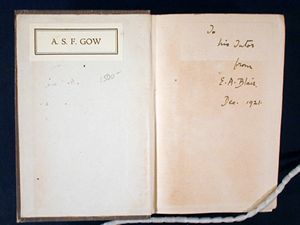 A. S. F. GOW
1500-
To
his Tutor
from
E. A. Blair
Dec. 1921.